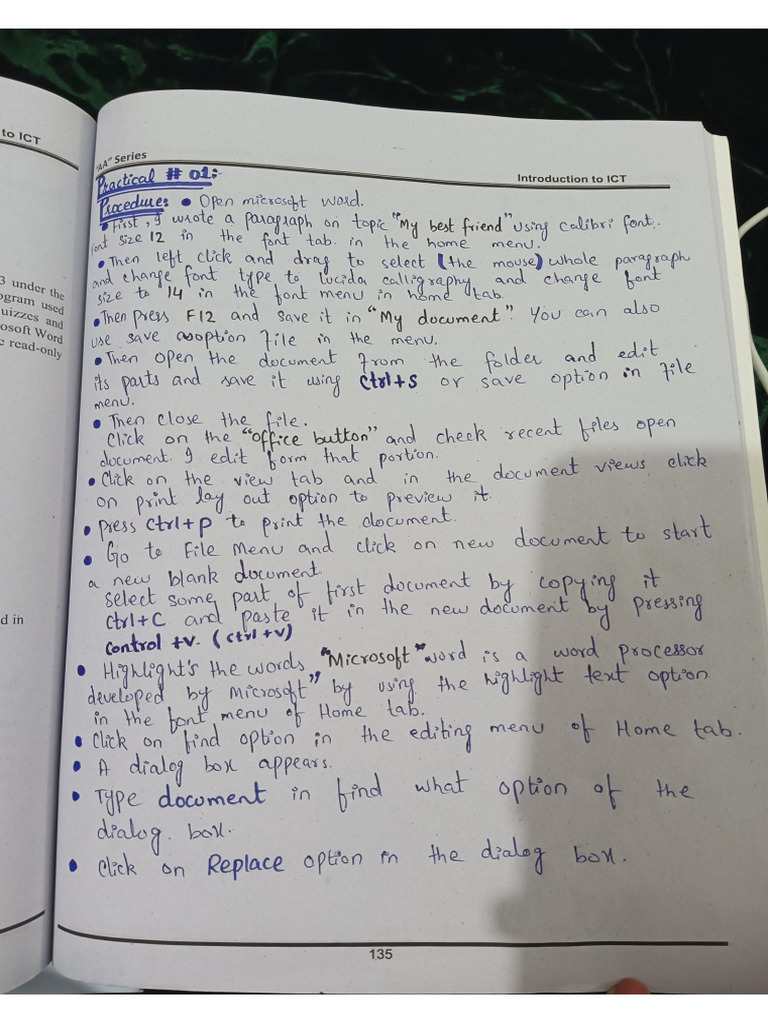 to ICT
3 under the
ogram used
uizzes and
osoft Word
e read-only
d in
"AA" Series
Introduction to ICT
Practical # 01:-
Procedure: • Open microsoft word.
• First, I wrote a paragraph on topic "My best friend" using calibri font.
font size 12 in the font tab. in the home menu.
• Then left click and drag to select (the mouse) whole paragraph
and change font type to lucida calligraphy and change font
size to 14 in the font menu in home tab.
• Then press F12 and save it in "My document". You can also
use save as option File in the menu.
• Then open the document from the folder and edit
its parts and save it using Ctrl+s or save option in File
menu.
• Then close the file.
Click on the "office button" and check recent files open
document. I edit form that portion.
• Click on the view tab and in the document views click
on print lay out option to preview it.
• press ctrl+p to print the document.
• Go to File Menu and click on new document to start
a new blank document.
select some part of first document by copying it
ctrl+c and paste it in the new document by pressing
control +v. (ctrl+v)
• Highlight's the words "Microsoft" word is a word processor
developed by Microsoft" by using the highlight text option
in the font menu of Home tab.
• Click on find option in the editing menu of Home tab.
• A dialog box appears.
• Type document in find what option of the
dialog. box.
• Click on Replace option in the dialog box.
135